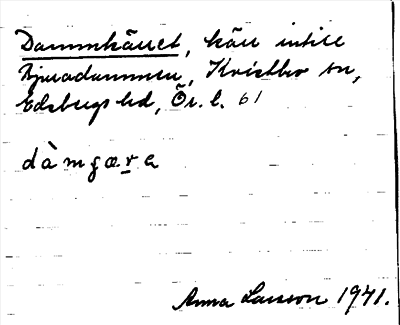 Dammkäret, kärr intill
Bjurdammen, Kvistbro sn,
Edsbergs hd, Ör. l. 61
dàmgæṛa
Anna Larsson 1941.